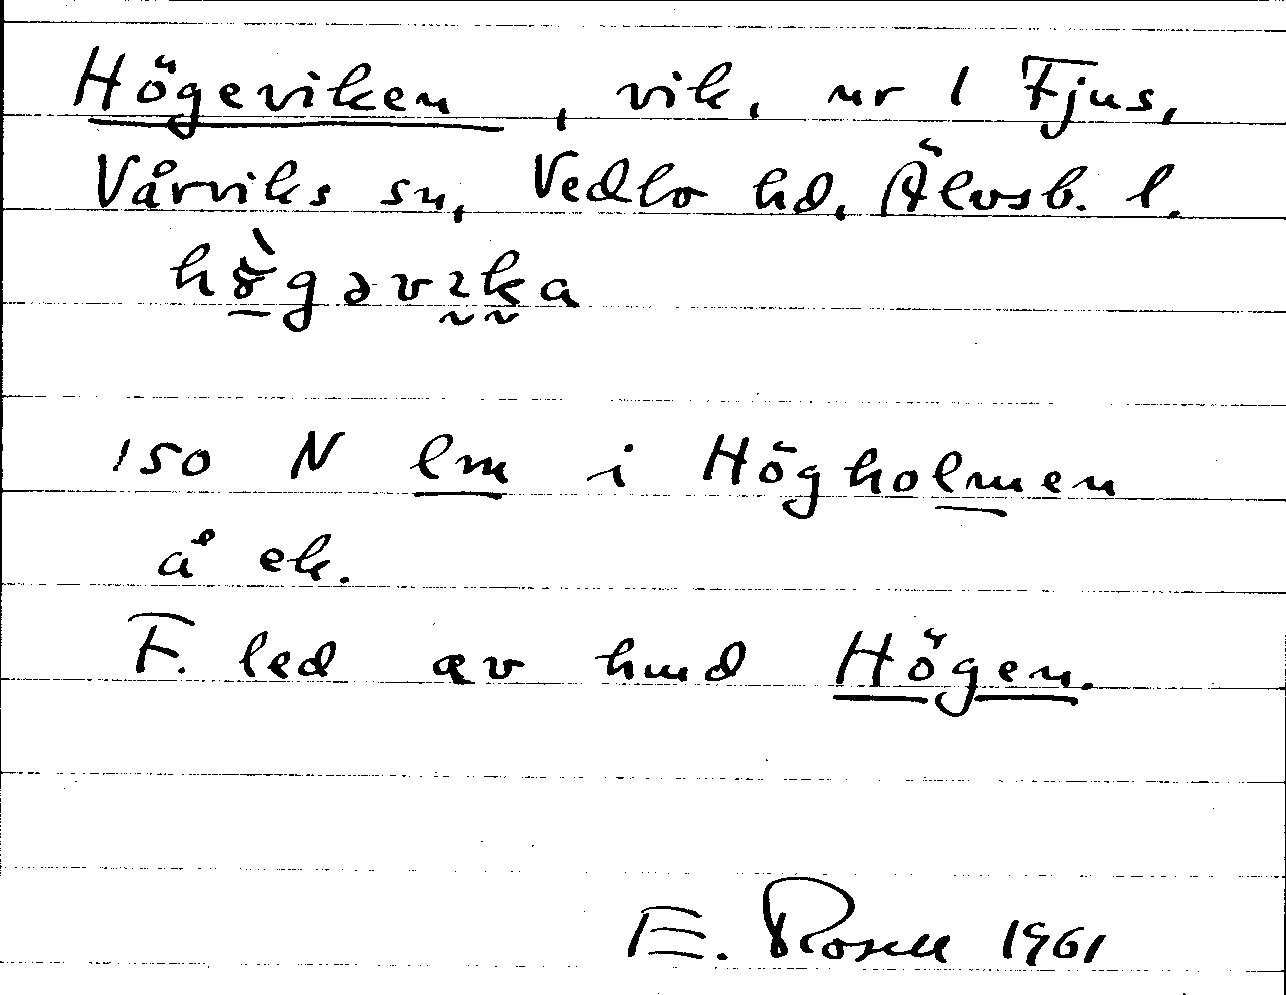 Högeviken, vik, nr 1 Fjus,
Vårviks sn, Vedbo hd, Älvsb. l.
150 N lm i Högholmen
å ek.
F. led av hmd Högen.
E. Rosell 1961